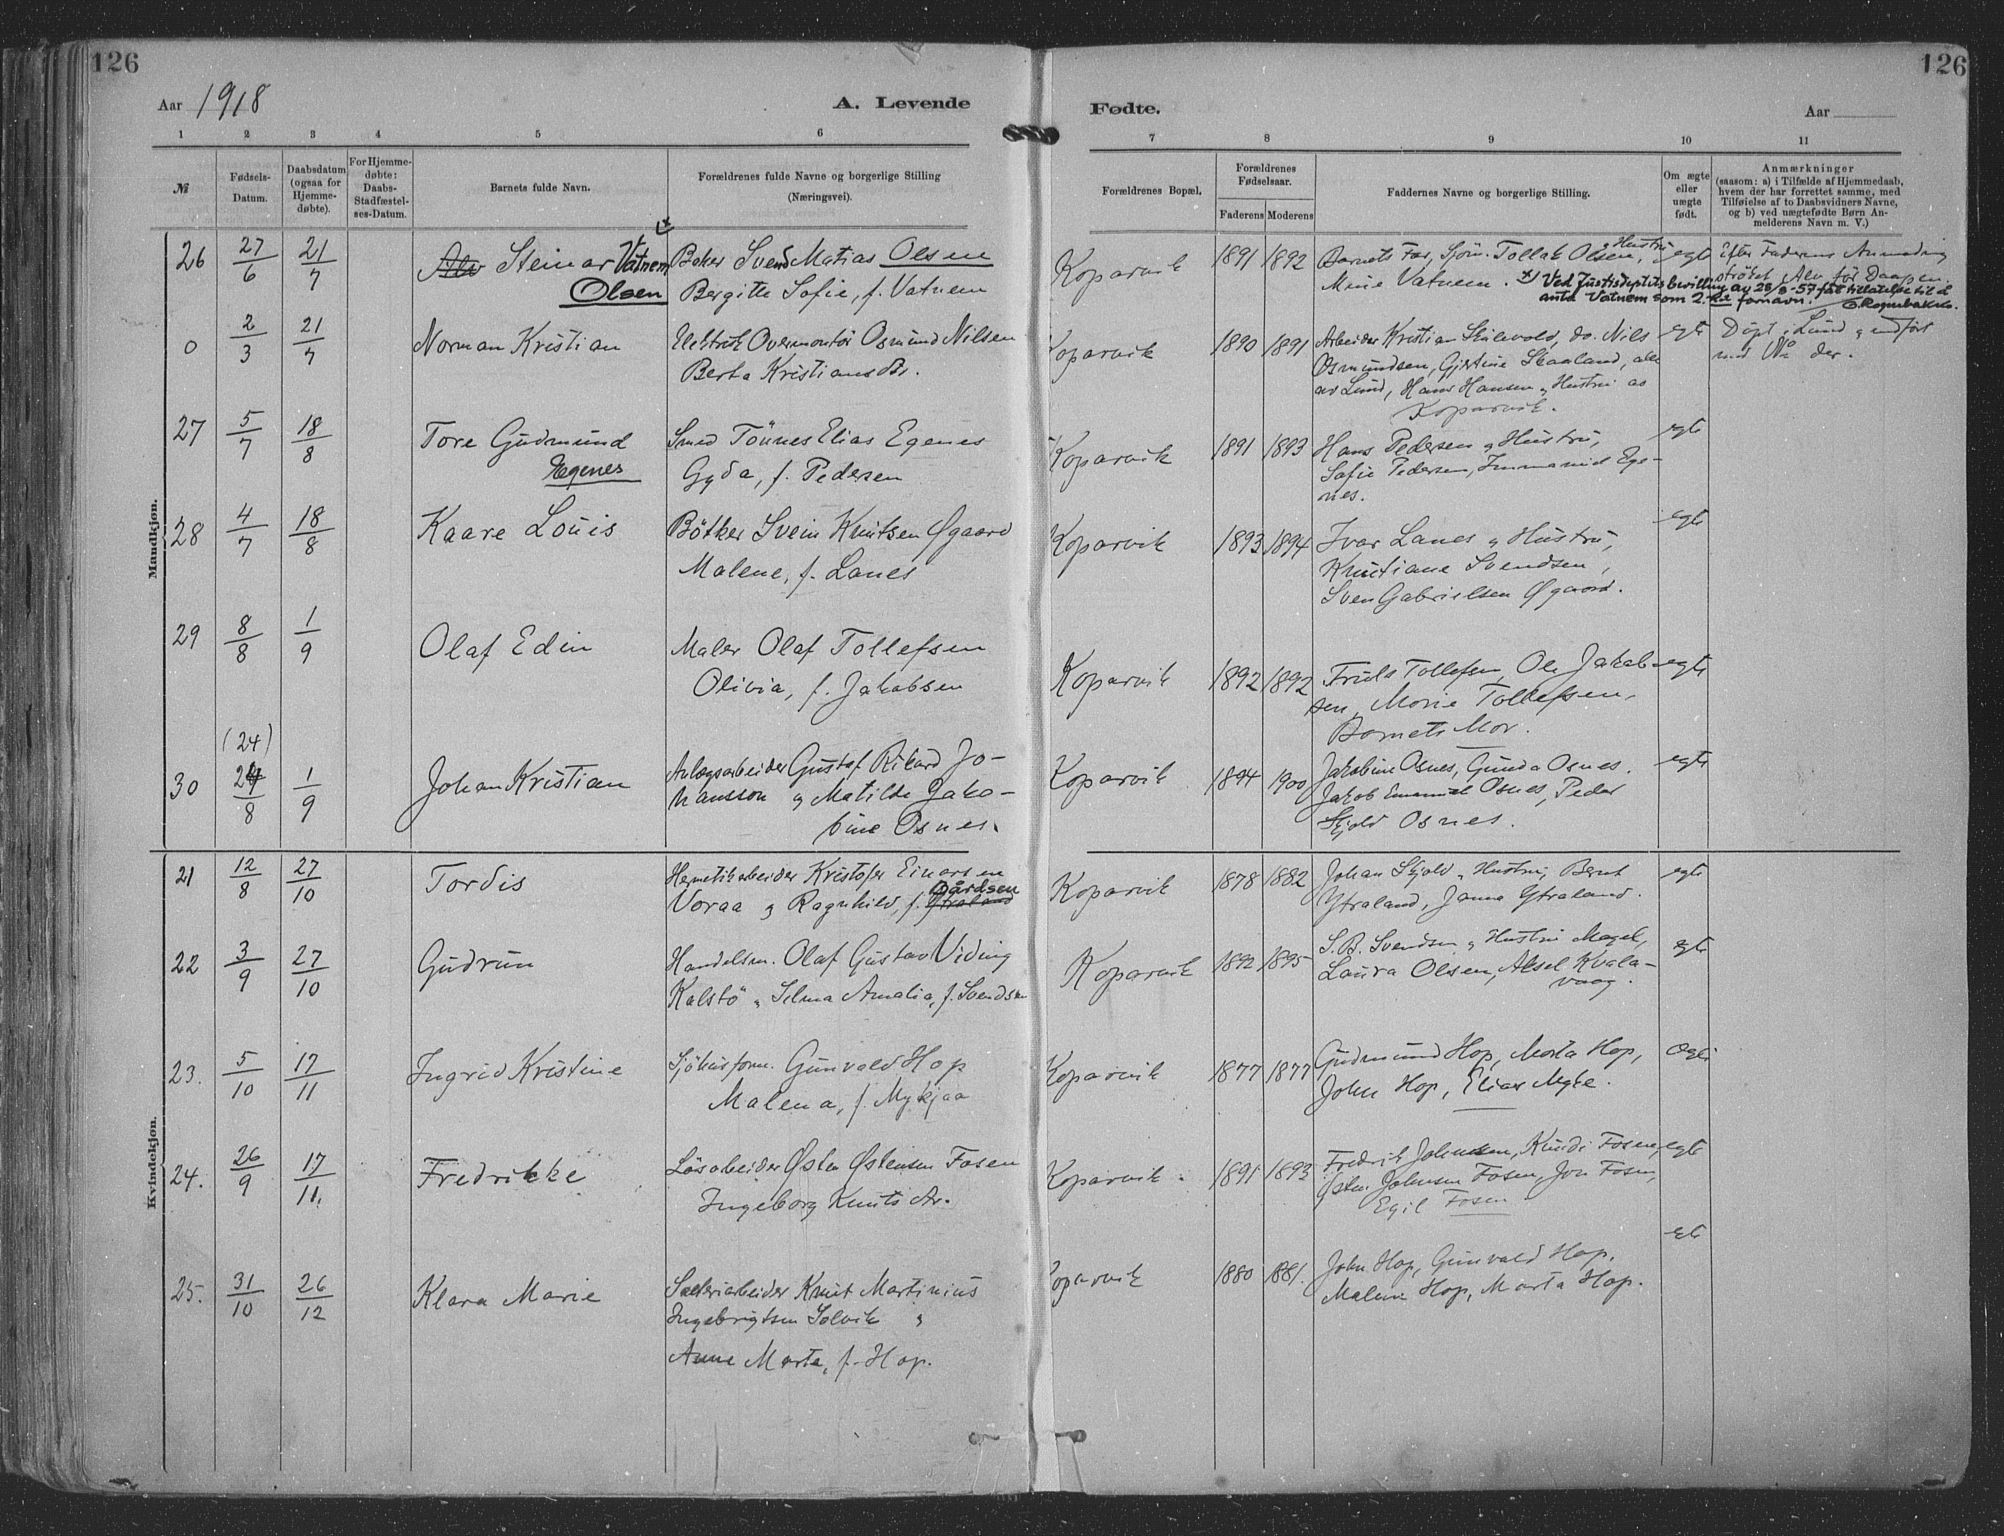 126
Aar 1918
A. Levende
1 2 3 4 5 6
№
Fødsels-
Datum.
Daabsdatum
(ogsaa for
Hjemme-
døbte).
For Hjemme-
døbte:
Daabs-
Stadfæstel-
ses-Datum.
Barnets fulde Navn.
Forældrenes fulde Navne og borgerlige Stilling
(Næringsvei).
Mandkjøn.
26 27/6 21/7 Alv Steinar Vatnem Baker Svend Matias Olsen
Olsen Bergitte Sofie, f. Vatnem
0 2/3 21/7 Norman Kristian Elektrik Overmontör Osmund Nilsen
Berta Kristiansdr.
27 5/7 18/8 Tore Gudmund Smed Tönnes Elias Egenes
Egenes Gyda, f. Pedersen
28 4/7 18/8 Kaare Louis Bötker Svein Knutsen Øgaard
Malene, f. Lanes
29 8/8 1/9 Olaf Edin Maler Olaf Tollefsen
Olivia, f. Jakobsen
(24)
30 24/8 1/9 Johan Kristian Anlægsarbeider Gustaf Rikard Jo-
hansson og Matilde Jako-
bine Osnes.
Kvindekjøn.
21 12/8 27/10 Tordis Hemetikarbeider Kristofer Einarsen
Bårdsen
Voraa og Ragnhild, f. Ytraland
22 3/9 27/10 Gudrun Handelsm. Olaf Gustav Viding
Kalstö " Selma Amalia, f. Svendsen
23. 5/10 17/11 Ingrid Kristine Sjöhusform. Gunvald Hop
Malena, f. Mykjaa
24. 26/9 17/11. Fredrikke Lösarbeider Østen Østensen Fosen
Ingeborg Knuts dr.
25. 31/10 26/12 Klara Marie Salteriarbeider Knut Martinius
Ingebrigtsen Solvik "
Anne Marta, f. Hop.
126
Fødte.
Aar
7 8 9 10 11
Forældrenes Bopæl.
Forældrenes
Fødselsaar.
Faderens Moderens
Faddernes Navne og borgerlige Stilling.
Om ægte
eller
uægte
født.
Anmærkninger
(saasom: a) i Tilfælde af Hjemmedaab,
hvem der har forrettet samme, med
Tilføielse af to Daabsvidners Navne,
og b) ved uægtefødte Børn An-
melderens Navn m. V.)
Koparvik 1891 1892 Barnets Far, Sjöm. Tollak Olsen, " Hustru egte Efter Faderens Anmodning
Mine Vatnem. strøket Alv før Daapen.
x) Ved Justisdeptets bevilling av 28/8-57 fåt tillatelse til å
anta Vatnem som 2-net fornavn.
Koparvik 1890 1891 Arbeider Kristian Skilevold, do. Nils egte Døpt i Lund og indført
Osmundsen, Gjertine Skaaland, alle med № der.
av Lund, Hans Hansen og Hustru av
Koparvik.
Koparvik 1891 1893 Hans Pedersen og Hustru, egte
Sofie Pedersen, Immanuel Ege-
nes.
Koparvik 1893 1894 Ivar Lanes og Hustru, egte
Kristiane Svendsen,
Sven Gabrielsen Øgaard.
Koparvik 1892 1892 Truls Tollefsen, Ole Jakob- egte
sen, Marie Tollefsen,
Barnets Mor.
Koparvik 1894 1900 Jakobine Osnes, Gunda Osnes. egte
Jakob Emanuel Osnes, Peder
Skjold Osnes.
Koparvik 1878 1882 Johan Skjold " Hustru, Bernt egte
Ytraland, Janna Ytraland.
Koparvik 1892 1895 S. B. Svendsen og Hustru Magel, egte
Laura Olsen, Aksel Kvala-
vaag.
Koparvik 1877 1877 Gudmund Hop, Marta Hop, egte
John Hop, Elias Myge.
Koparvik. 1891 1893 Fredrik Johnsen, Knudi Fosen, egte
Østen Johnsen Fosen, Jon Fosen,
Egil Fosen
Koparvik 1880 1881. John Hop, Gunvald Hop, egte
Malene Hop, Marta Hop.